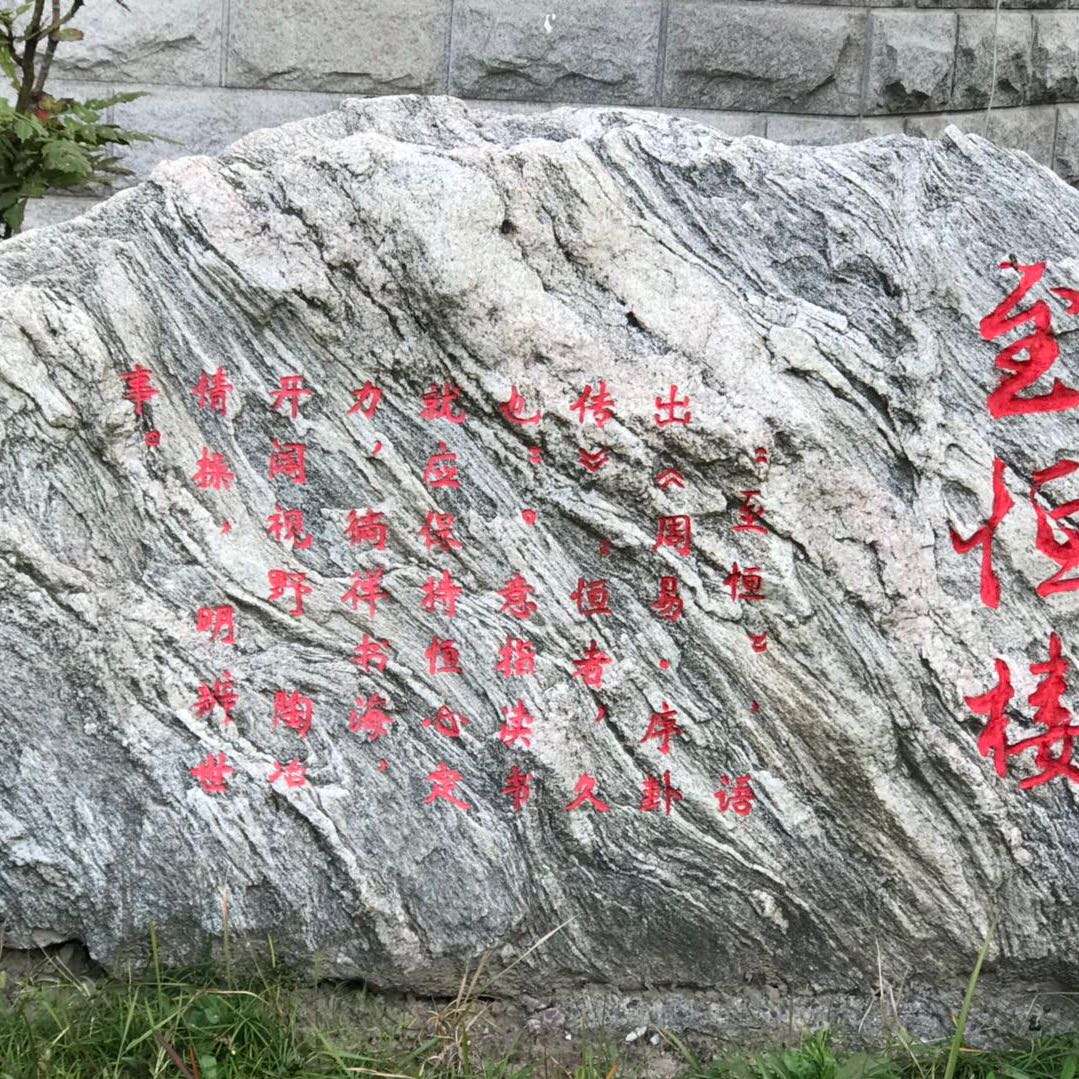 至恒楼
“至恒”、语
出《周易·序卦
传》,恒者,久
也:。意指
就应保持恒心定
力,徜徉书海、
开阔视野 陶冶
情操,明辨世
事。